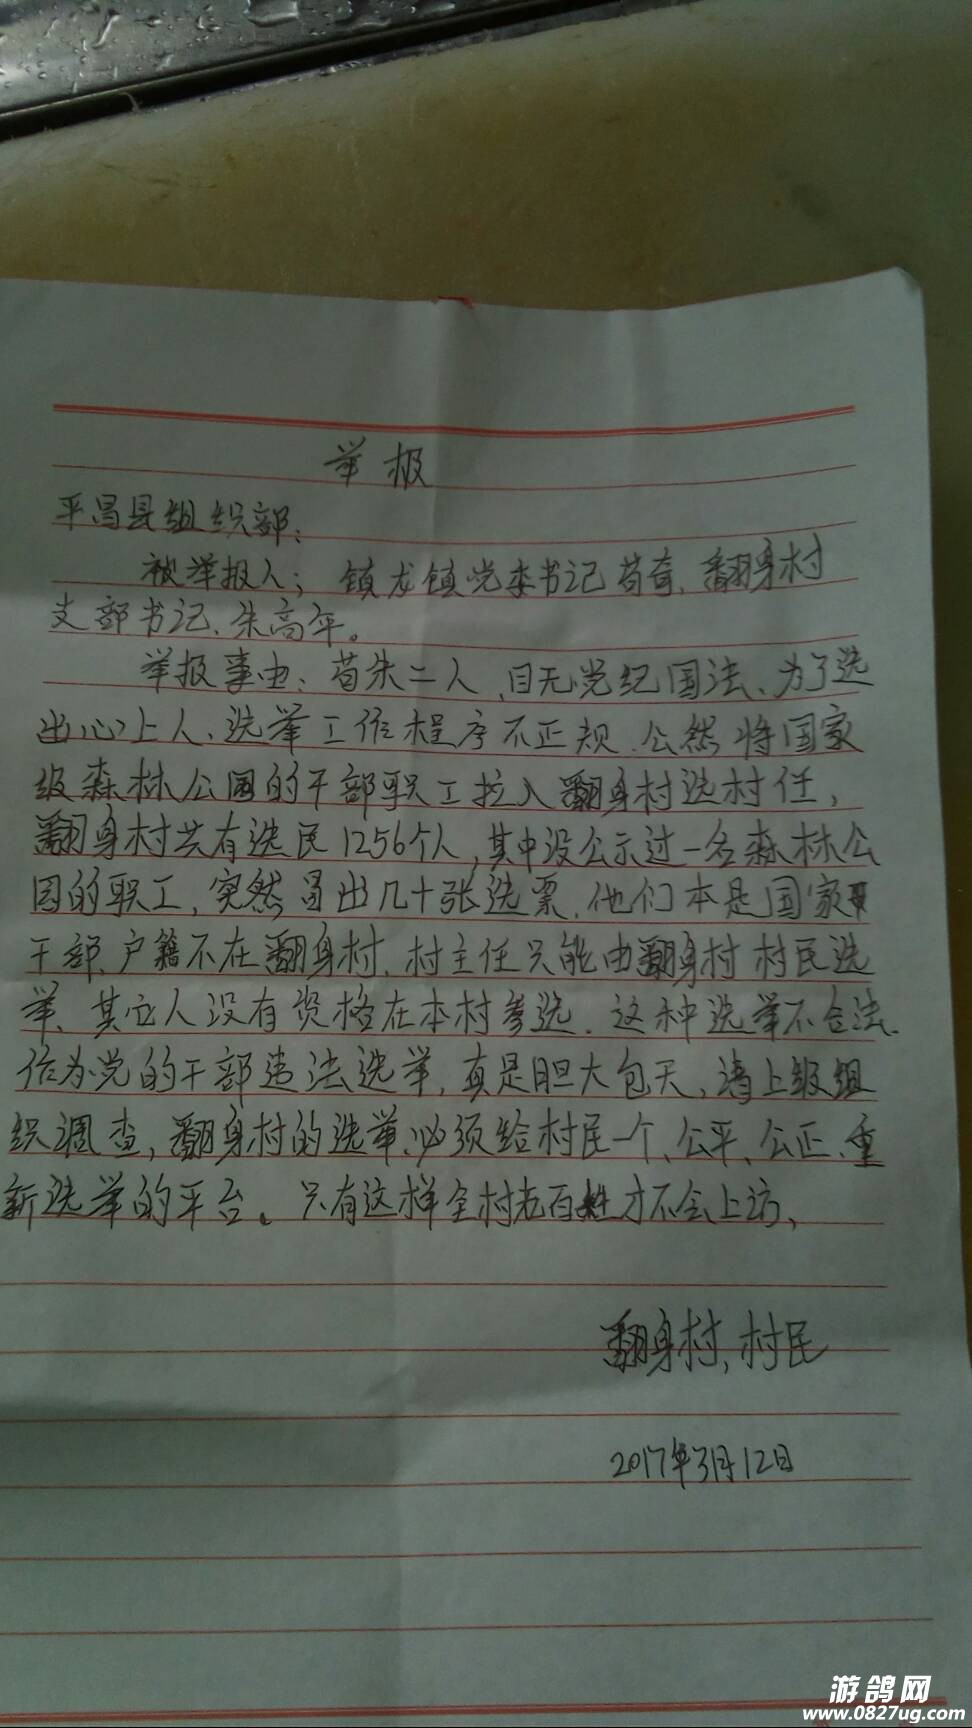 举报
平昌县组织部:
被举报人; 镇龙镇党委书记苟奋, 翻身村
支部书记、朱高年。
举报事由: 苟朱二人、目无党纪国法、为了选
出心上人、选举工作程序不正规、公然将国家
级森林公园的干部职工拉入翻身村选村任,
翻身村共有选民1256个人, 其中没公示过一名森林公
园的职工, 突然冒出几十张选票, 他们本是国家
干部、户籍不在翻身村, 村主任只能由翻身村村民选
举、其它人没有资格在本村参选. 这种选举不合法.
作为党的干部违法选举, 真是胆大包天, 请上级组
织调查, 翻身村的选举、必须给村民一个、公平、公正、重
新选举的平台。只有这样全村老百姓才不会上访、
翻身村, 村民
2017年3月12日
游鸽网
www.0827ug.com